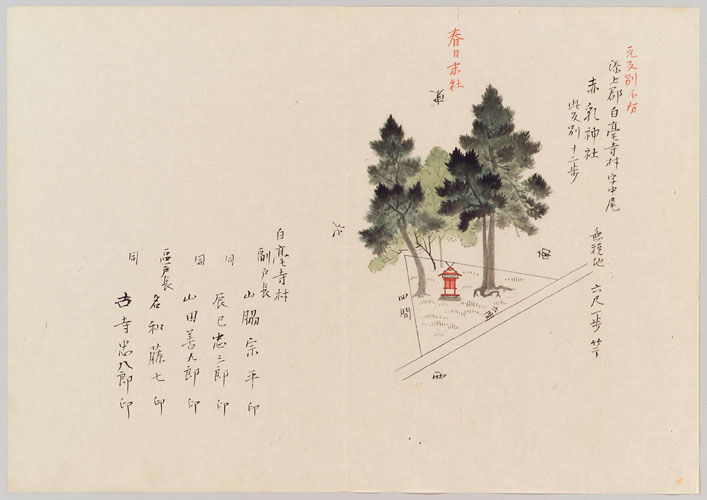 元反別不分
添上郡白毫寺村字中尾
赤乳神社
此反別十二歩
無税地 六尺一歩竿
春日末社
東
北
南
西
四間
白毫寺村
副戸長
山脇宗平印
同
辰巳忠三郎印
同
山田善九郎印
區戸長
名和藤七印
同
古寺忠八郎印